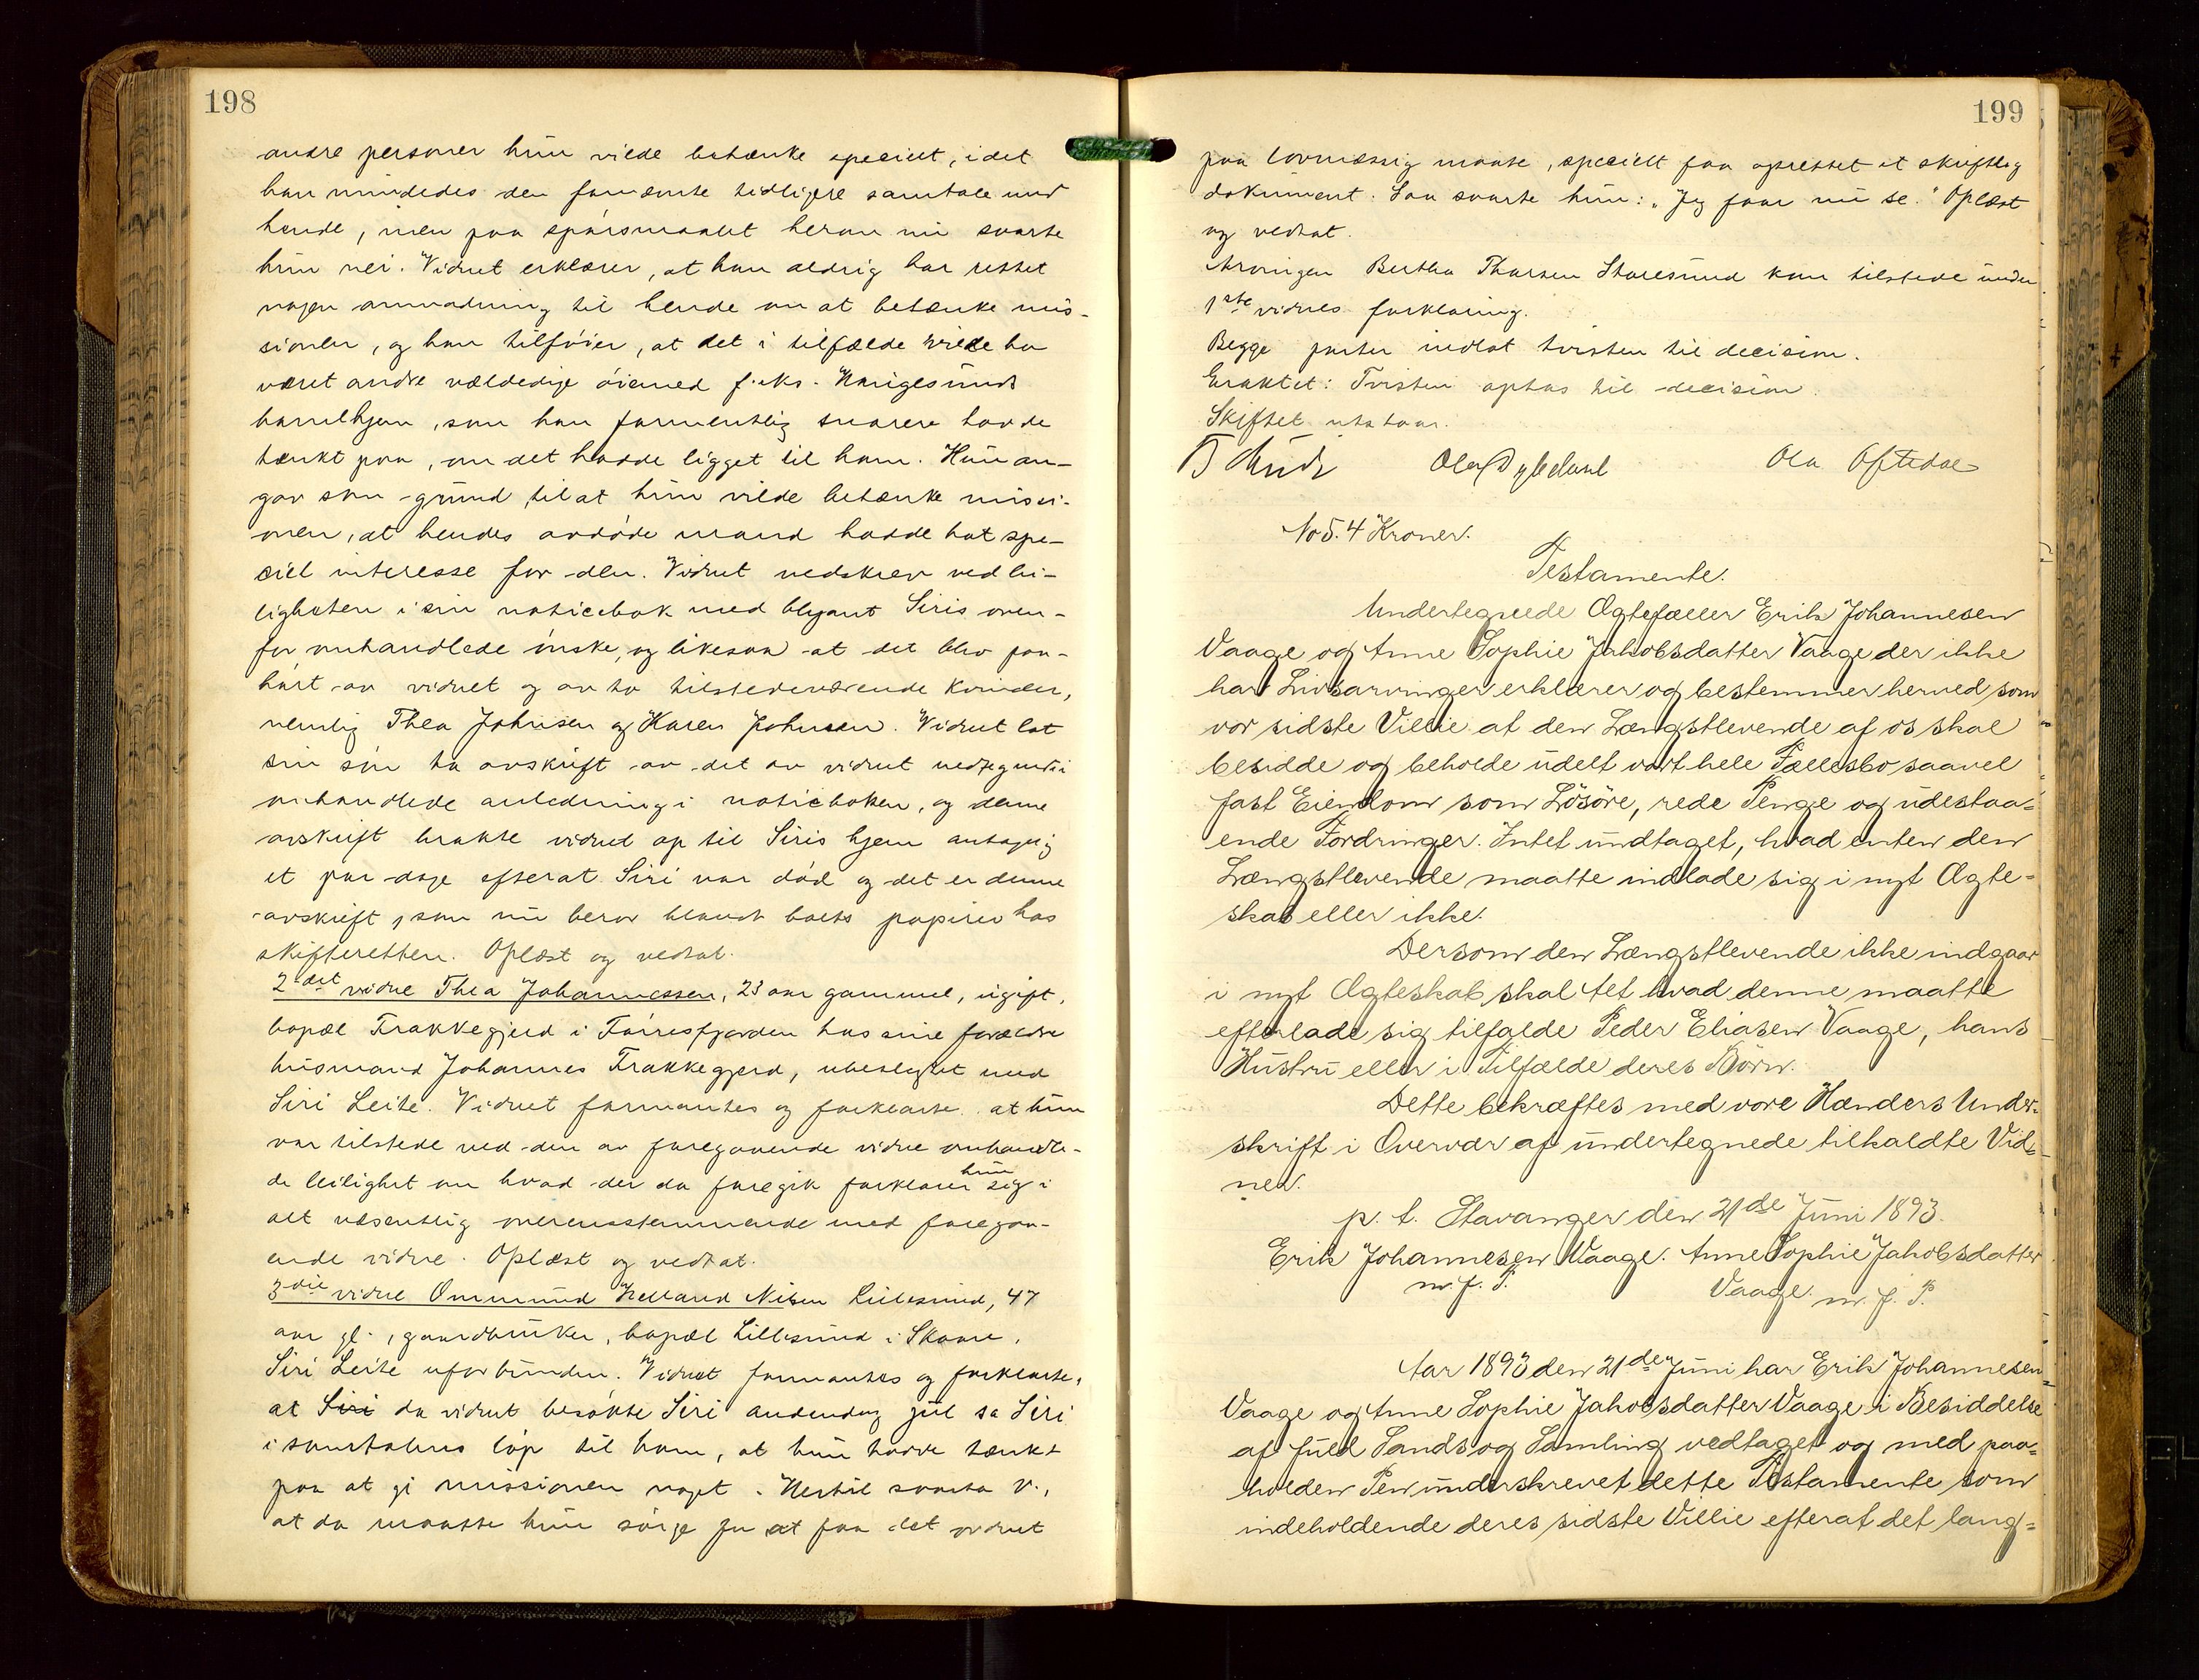 198
andre personer hun vilde betænke specielt, idet
han mindedes den fornævnte tidligere samtale med
hende, men paa spörsmaalet herom nu svarte
hun nei. Vidnet erklærer, at han aldrig har rettet
nogen anmodning til hende om at betænke mis-
sionen, og han tilföier, at det i tilfælde vilde ha
været andre vældedige öiemed f. eks. Haugesunds
barnehjem, som han formentlig snarere hadde
tænkt paa, om det hadde ligget til ham. Hun an-
gav som grund til at hun vilde betænke missi-
onen, at hendes avdöde mand hadde hat spe-
ciel interesse for den. Vidnet nedskrev ved lei-
ligheten i sin noticebok med blyant Siris oven-
for omhandlede önske, og likesaa at det blev paa-
hört av vidnet og av to tilstedeværende kvinder,
nemlig Thea Johnsen og Karen Johnsen. Vidnet lot
sin sön ta avskrift av det av vidnet nedtegnede i
omhandlede anledning i noticeboken, og denne
avskrift brakte vidnet op til Siris hjem antagelig
et par dage efterat Siri var död og det er denne
avskrift, som nu beror blandt boets papirer hos
skifteretten. Oplæst og vedtat.
2det vidne Thea Johannessen, 23 aar gammel, ugift,
bopæl Frakkegjerd i Förresfjorden hos sine forældre
husmand Johannes Frakkegjerd, ubeslegtet med
Siri Leite. Vidnet formantes og forklarte at hun
var tilstede ved den av foregaaende vidne omhandle-
de leilighet om hvad der da foregik forklarer hun sig i
alt væsentlig overensstemmende med foregaa-
ende vidne. Oplæst og vedtat.
3die vidne Ommund Helland Nilsen Lillesund, 47
aar gl., gaardbruker, bopæl Lillesund i Skaare,
Siri Leite uforbunden. Vidnet formantes og forklarte,
at Siri da vidnet besökte Siri andendag jul sa Siri
i samtalens löp til ham, at hun hadde tænkt
paa at gi missionen noget. Hertil svarte v.,
at da maatte hun sörge for at faa det ordnet
199
paa lovmæssig maate, specielt faa oprettet et skriftlig
dokument. Saa svarte hun: "Jeg faar nu se." Oplæst
og vedtat.
Arvingen Bertha Thorsen Storesund kom tilstede under
1ste vidnes forklaring.
Begge parter indlot tvisten til decision.
Eraktet: Tvisten optas til decision.
Skiftet utstaar.
Ola Oftedal
No 5. 4 Kroner.
Testamente.
Undertegnede Ægtefæller Erik Johannesen
Vaage og Anne Sophie Jakobsdatter Vaage der ikke
har Livsarvinger erklærer og bestemmer herved som
vor sidste Villie at den Længstlevende af os skal
besidde og beholde udelt vort hele Fællesbo saavel
fast Eiendom som Lösöre, rede Penge og udestaa=
ende Fordringer. Intet undtaget, hvad enten den
Længstlevende maatte indlade sig i nyt Ægte=
skab eller ikke.
Dersom den Længstlevende ikke indgaar
i nyt Ægteskab skal tet hvad denne maatte
efterlade sig tilfalde Peder Eliasen Vaage, hans
Hustru eller i Tilfælde deres Börn.
Dette bekræftes med vore Hænders Under=
skrift i Overvær af undertegnede tilkaldte Vid=
ner.
p. t. Stavanger den 21de Juni 1893.
Erik Johannesen Vaage. Anne Sophie Jakobsdatter
m. f. P. Vaage. m. f. P.
Aar 1893 den 21de Juni har Erik Johannesen
Vaage og Anne Sophie Jakobsdatter Vaage i Besiddelse
af fuld Sands og Samling vedtaget og med paa=
holden Pen underskrevet dette Testamente som
indeholdende deres sidste Villie efterat det lang=